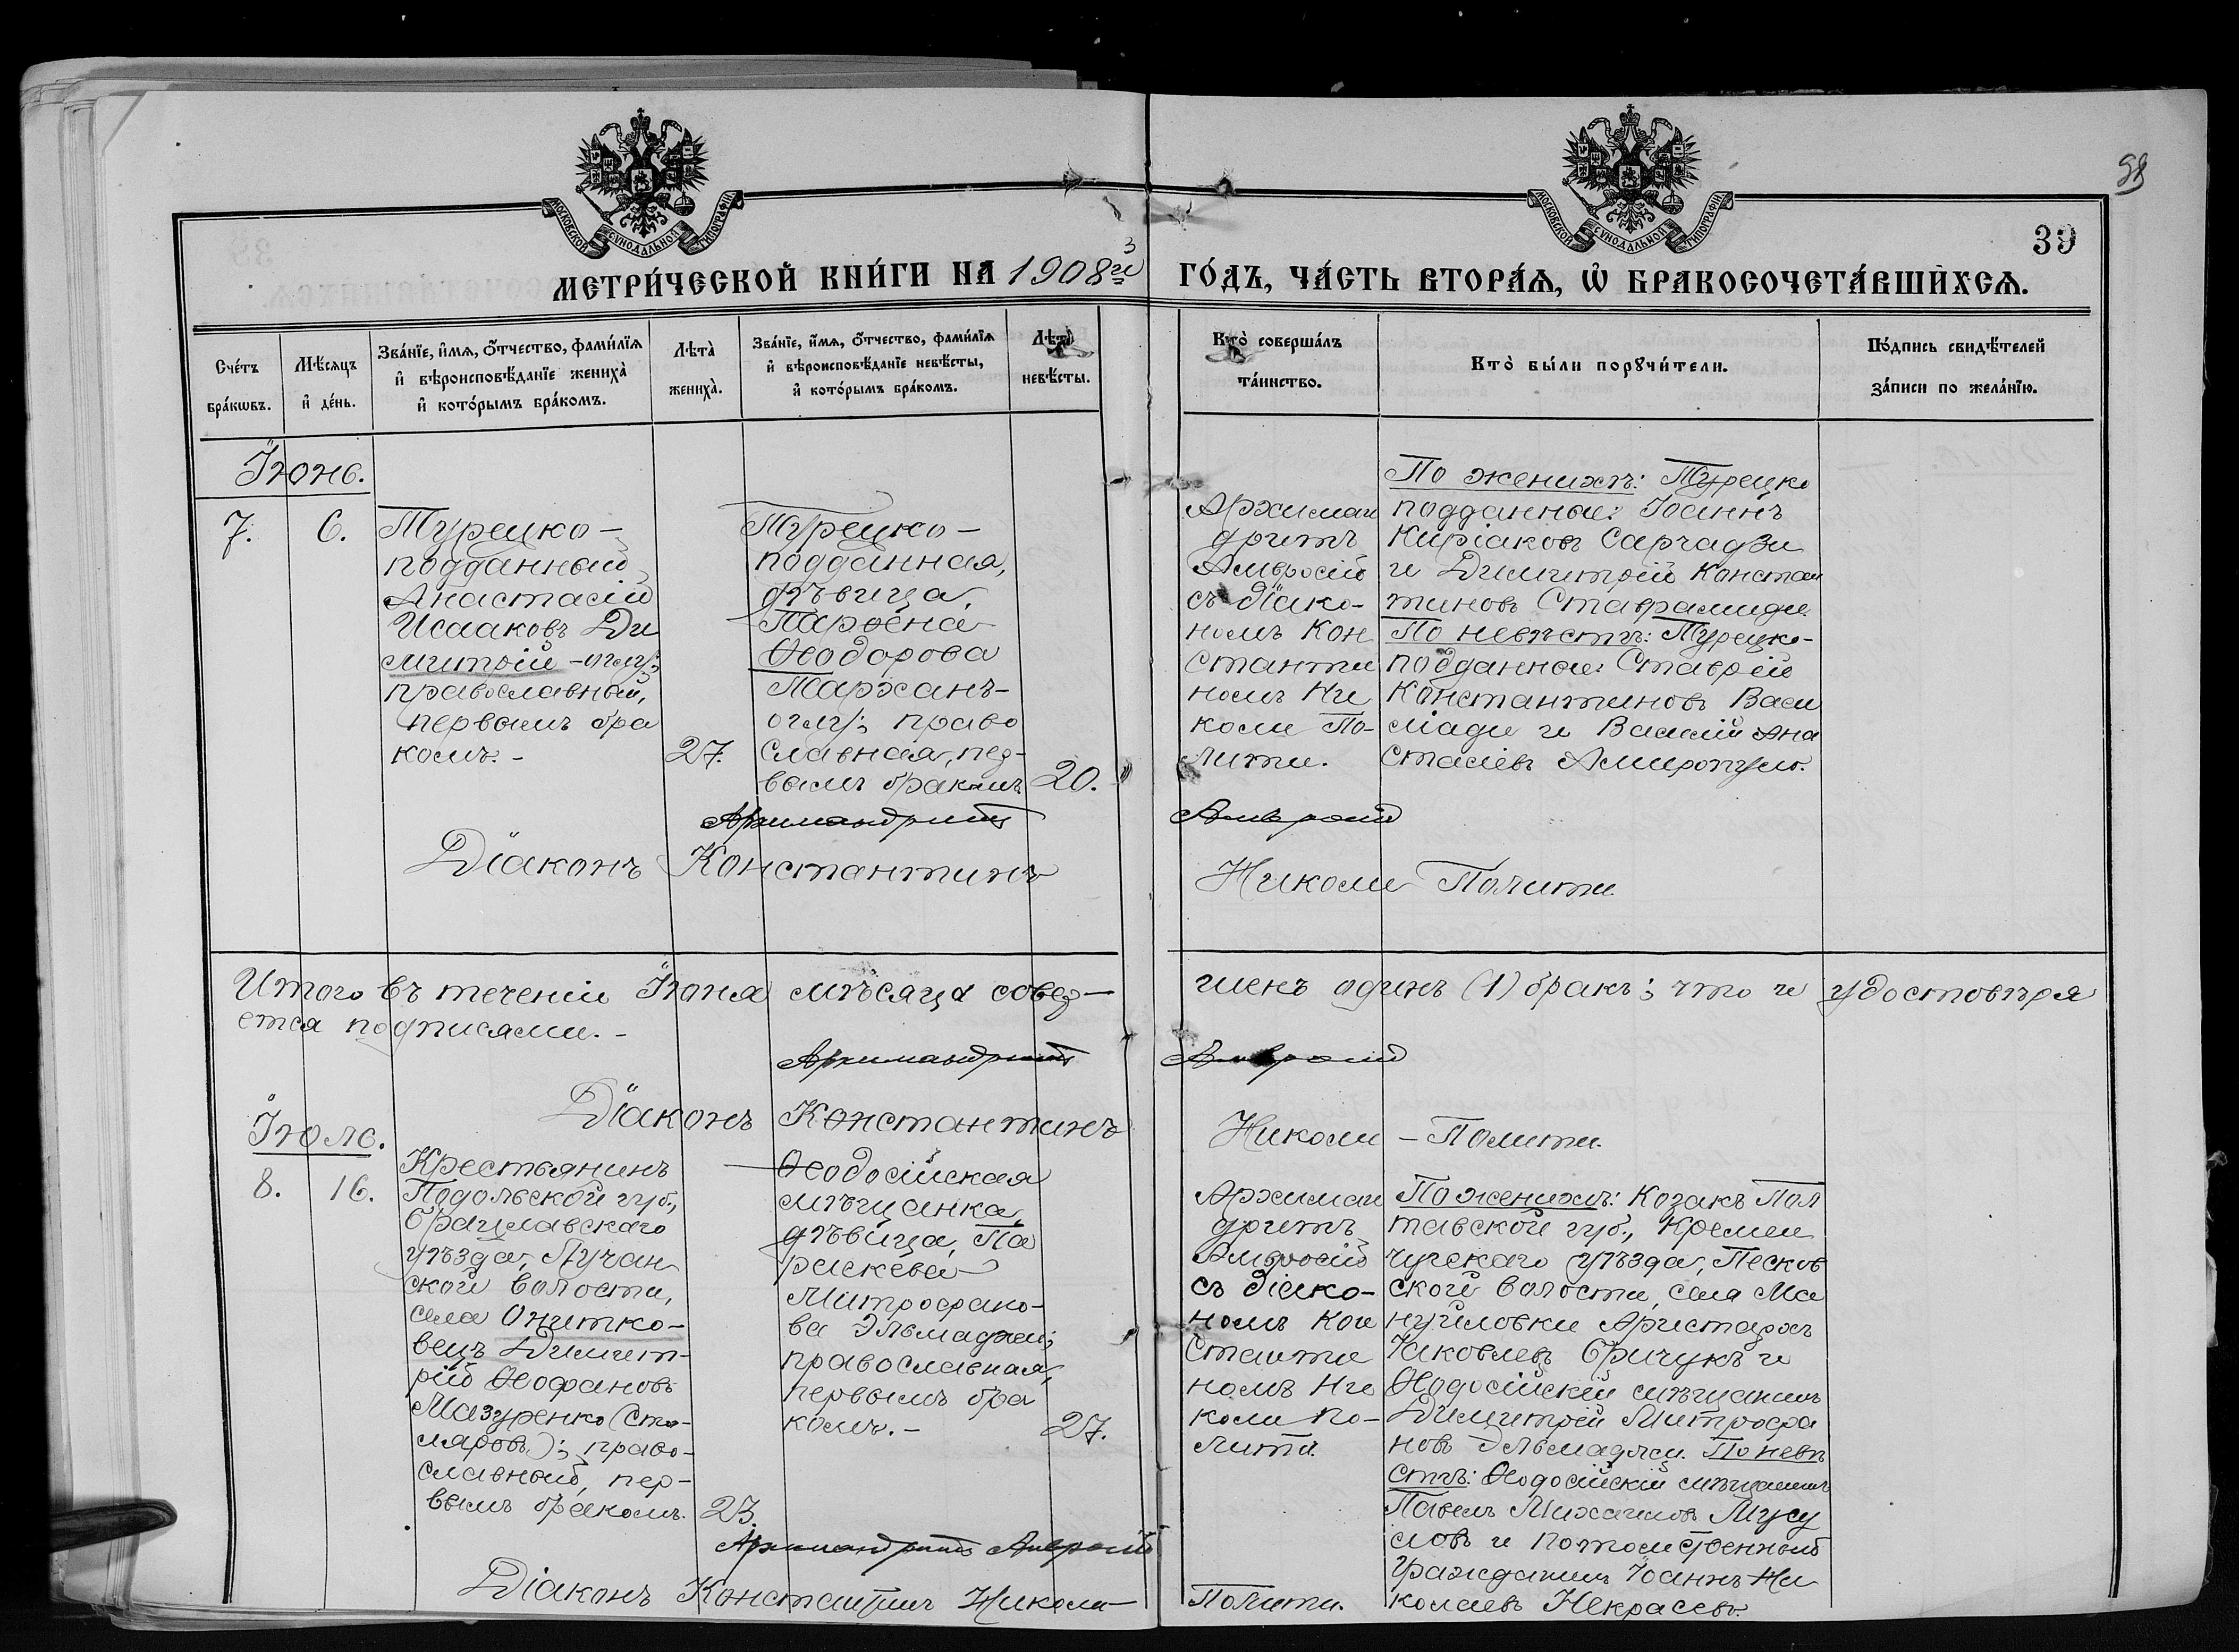 98
39
МОСКОВСКОЙ СУНОДАЛЬНОЙ ТИПОГРАФІИ
МОСКОВСКОЙ СУНОДАЛЬНОЙ ТИПОГРАФІИ
МЕТРИ́ЧЕСКОЙ КНИ́ГИ НА 1908й ГО́ДЪ, ЧА́СТЬ ВТОРА́Ѧ, Ѽ БРАКОСОЧЕТА́ВШИХСѦ.
Сче́тъ
бра́кѡвъ.
Мѣ́сяцъ
и҆ де́нь.
Зва́нїе, и҆́мѧ, ѻ҆́тчество, фами́лїѧ
и҆ вѣроисповѣ́данїе жениха̀
и҆ кото́рымъ бра́комъ.
Лѣта̀
жениха̀.
Зва́нїе, и҆́мѧ, ѻ҆́тчество, фами́лїѧ
и҆ вѣроисповѣ́данїе невѣ́сты,
и҆ кото́рымъ бра́комъ.
Лѣта̀
невѣ́сты.
Кто̀ соверша́лъ
та́инство.
Кто̀ бы́ли порꙋчи́тели.
По́дпись свидѣ́телей
за́писи по жела́нїю.
Іюнь.
7.
6.
Турецко-
подданный
Анастасій
Исааковъ Ди
митрій-оглу;
православный,
первымъ бра
комъ.-
27.
Турецко-
подданная,
дѣвица,
Парѳена
Ѳеодорова
Тарханъ-
оглу; право
славная, пер-
вымъ бракомъ
20.
Архиман
дритъ
Амвросій
съ діако-
номъ Кон
стантин
номъ Ни
коли По-
лити.
По женихѣ: Турецко
подданные: Іоаннъ
Киріаковъ Сарчадзи
и Димитрій Констан
тиновъ Ставрамиди
По невѣстѣ: Турецко-
подданные: Ставрій
Константиновъ Васи
ліади и Василій Ана
стасіевъ Амиропуло.
Архимандритъ Амвросій
Діаконъ Константинъ Николи Полити
Итого въ теченіи Іюня мѣсяца совер-шенъ одинъ (1) бракъ; что и удостовѣря
ется подписями.-
Архимандритъ Амвросій
Діаконъ Константинъ Николи - Полити.
Іюль.
8.
16.
Крестьянинъ
Подольской губ.,
Брацлавскаго
уѣзда, Лучан
ской волости,
села Онитко-
вецъ Димит-
рій Ѳеофановъ
Мазуренко (Сто-
ляровъ); право-
славный, пер-
вымъ бракомъ.
23.
Ѳеодосійская
мѣщанка,
дѣвица, Па
раскева
Митрофано-
ва Эльмаджи;
православная,
первымъ бра
комъ.-
27.
Архиман
дритъ
Амвросій
съ діако-
номъ Кон
станти
номъ Ни
коли По-
лити.
По женихѣ: Козакъ Пол
тавской губ., Кремен
чугскаго уѣзда, Песков
ской волости, села Ма
нуйловки Аристархъ
Яковлевъ Бричукъ и
Ѳеодосійскій мѣщанинъ
Димитрій Митрофа
новъ Эльмаджи. По невѣ
стѣ: Ѳеодосійскій мѣщанинъ
Павелъ Михаиловъ Мусу
ловъ и потомственный
гражданинъ Іоаннъ Ни
колаевъ Некрасовъ.
Архимандритъ Амвросій
Діаконъ Константинъ Николи Полити.